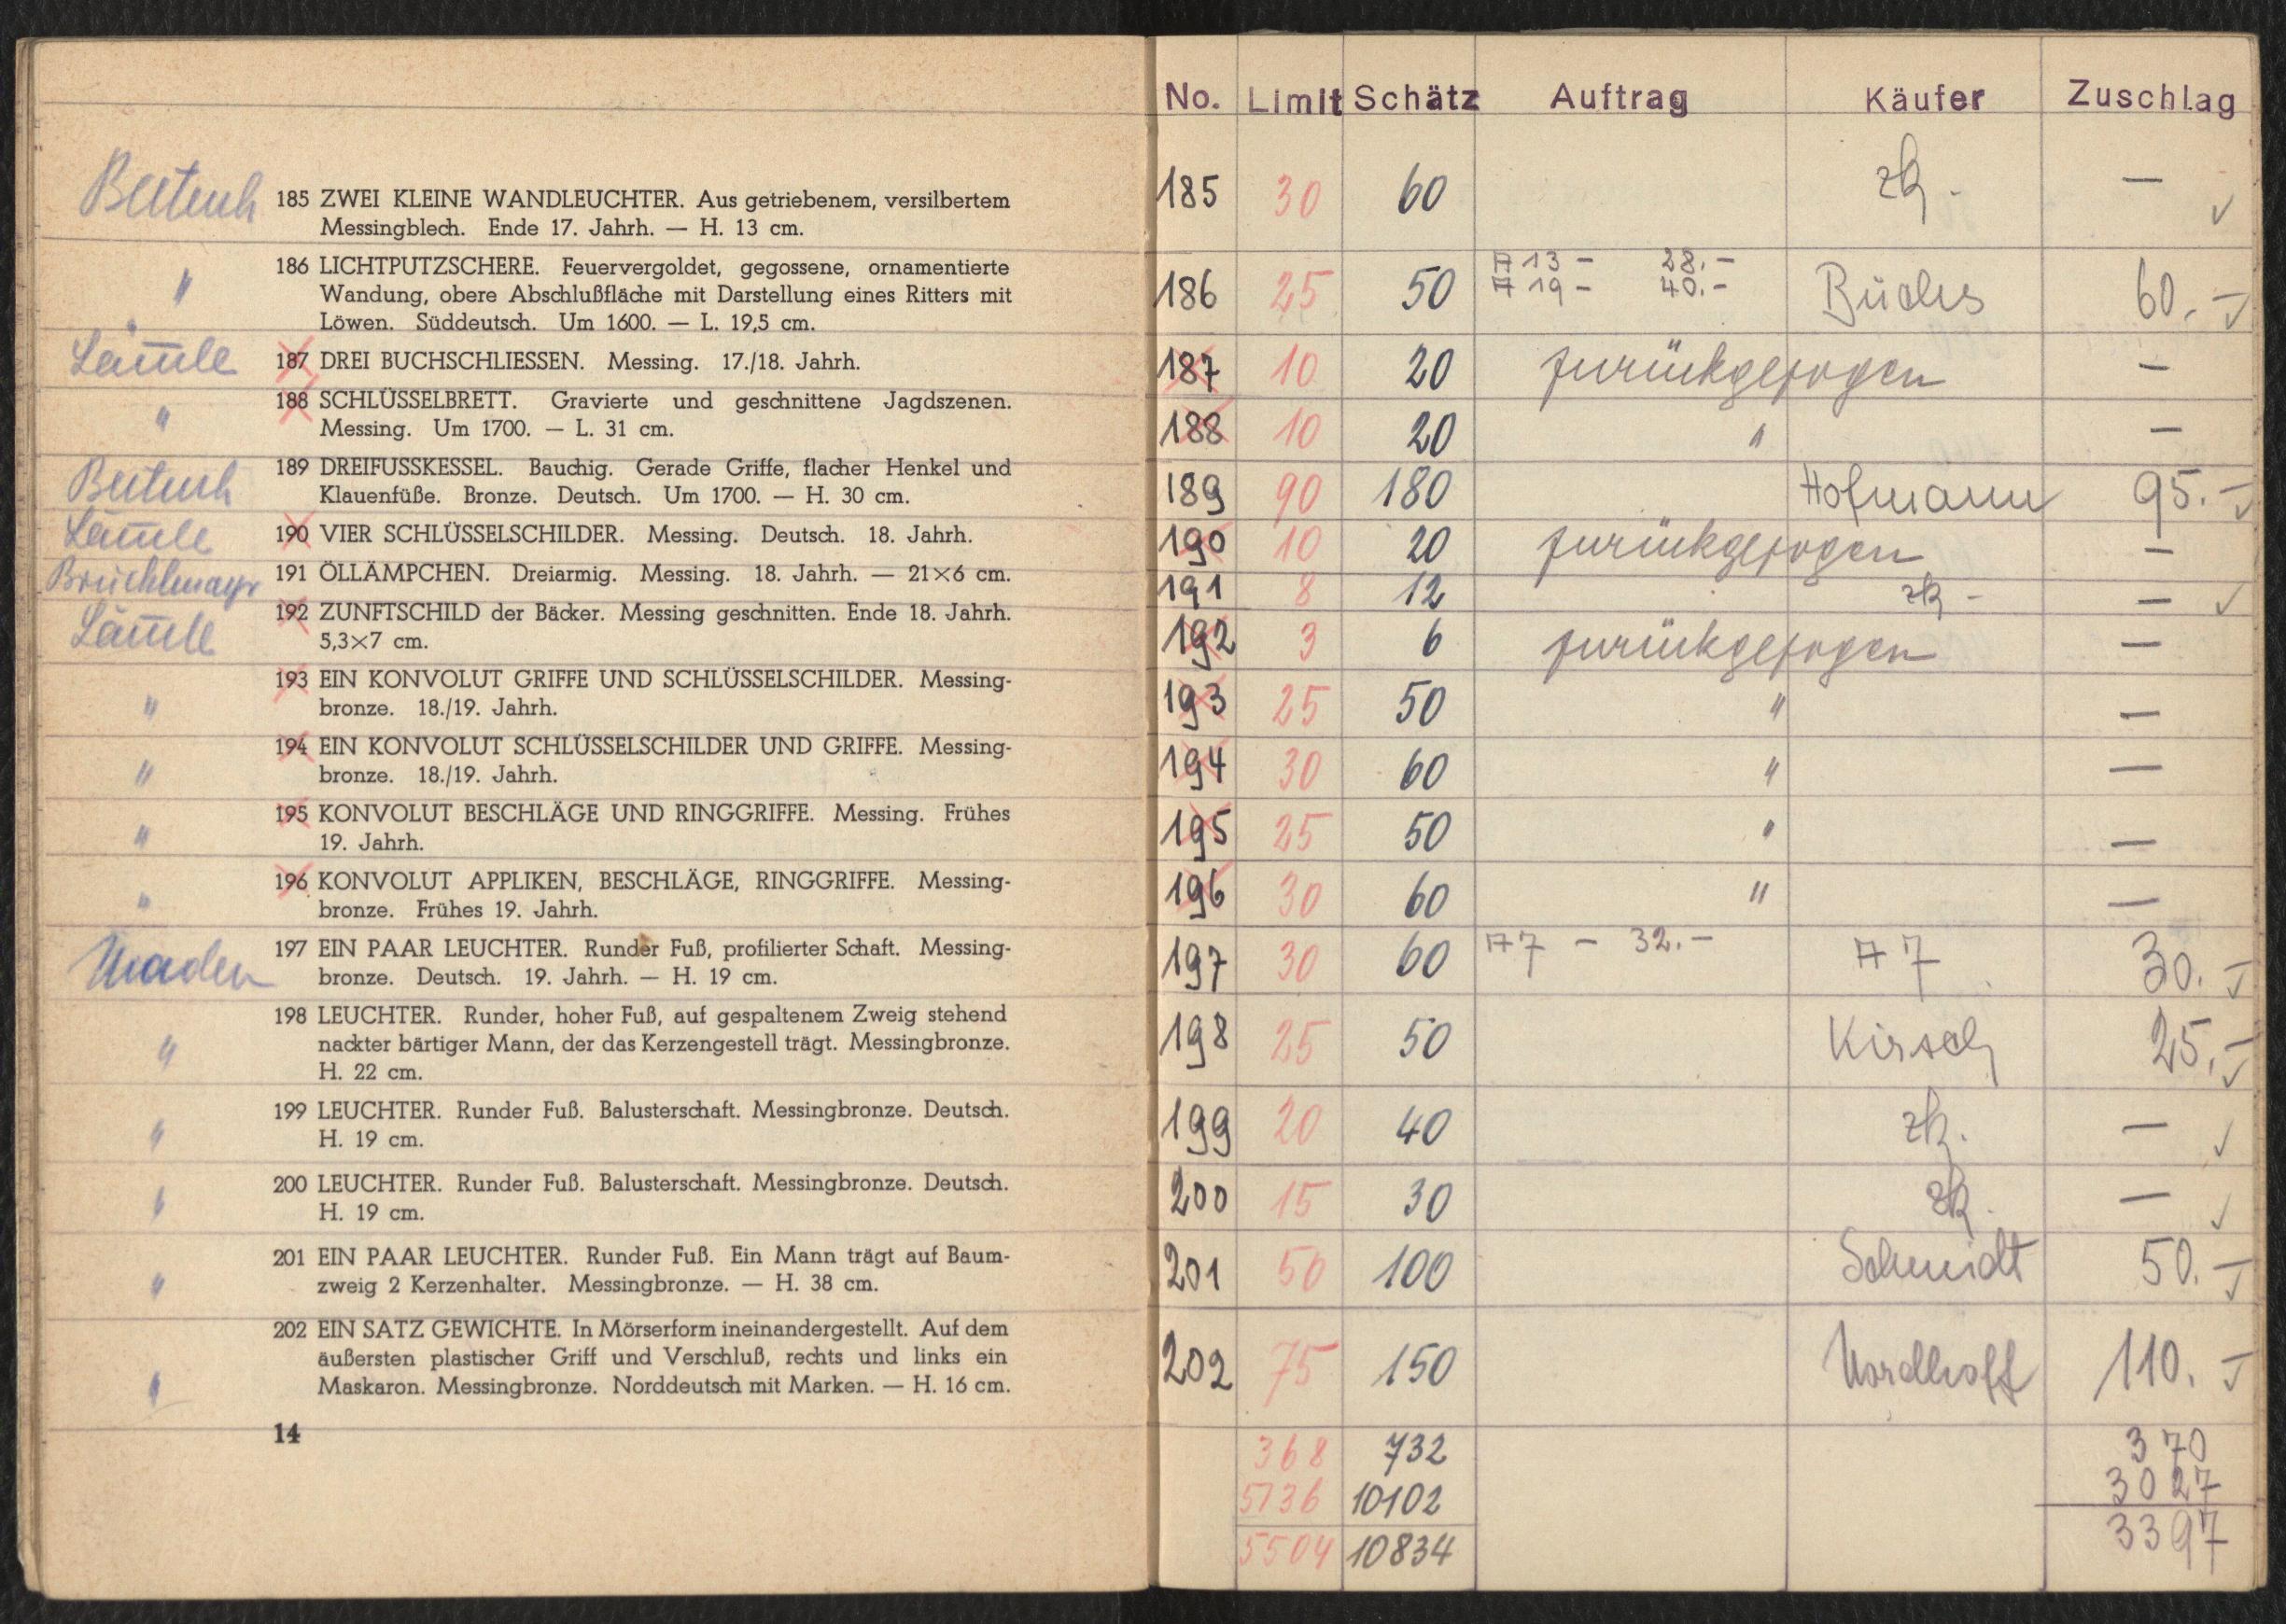 185 ZWEI KLEINE WANDLEUCHTER. Aus getriebenem, versilbertem
Messingblech. Ende 17. Jahrh. — H. 13 cm.
" 186 LICHTPUTZSCHERE. Feuervergoldet, gegossene, ornamentierte
Wandung, obere Abschlußfläche mit Darstellung eines Ritters mit
Löwen. Süddeutsch. Um 1600. — L. 19,5 cm.
187 DREI BUCHSCHLIESSEN. Messing. 17./18. Jahrh.
" 188 SCHLÜSSELBRETT. Gravierte und geschnittene Jagdszenen.
Messing. Um 1700. — L. 31 cm.
189 DREIFUSSKESSEL. Bauchig. Gerade Griffe, flacher Henkel und
Klauenfüße. Bronze. Deutsch. Um 1700. — H. 30 cm.
190 VIER SCHLÜSSELSCHILDER. Messing. Deutsch. 18. Jahrh.
191 ÖLLÄMPCHEN. Dreiarmig. Messing. 18. Jahrh. — 21×6 cm.
192 ZUNFTSCHILD der Bäcker. Messing geschnitten. Ende 18. Jahrh.
5,3×7 cm.
193 EIN KONVOLUT GRIFFE UND SCHLÜSSELSCHILDER. Messing-
" bronze. 18./19. Jahrh.
194 EIN KONVOLUT SCHLÜSSELSCHILDER UND GRIFFE. Messing-
" bronze. 18./19. Jahrh.
195 KONVOLUT BESCHLÄGE UND RINGGRIFFE. Messing. Frühes
" 19. Jahrh.
196 KONVOLUT APPLIKEN, BESCHLÄGE, RINGGRIFFE. Messing-
" bronze. Frühes 19. Jahrh.
197 EIN PAAR LEUCHTER. Runder Fuß, profilierter Schaft. Messing-
bronze. Deutsch. 19. Jahrh. — H. 19 cm.
198 LEUCHTER. Runder, hoher Fuß, auf gespaltenem Zweig stehend
" nackter bärtiger Mann, der das Kerzengestell trägt. Messingbronze.
H. 22 cm.
199 LEUCHTER. Runder Fuß. Balusterschaft. Messingbronze. Deutsch.
" H. 19 cm.
200 LEUCHTER. Runder Fuß. Balusterschaft. Messingbronze. Deutsch.
" H. 19 cm.
201 EIN PAAR LEUCHTER. Runder Fuß. Ein Mann trägt auf Baum-
" zweig 2 Kerzenhalter. Messingbronze. — H. 38 cm.
202 EIN SATZ GEWICHTE. In Mörserform ineinandergestellt. Auf dem
äußersten plastischer Griff und Verschluß, rechts und links ein
" Maskaron. Messingbronze. Norddeutsch mit Marken. — H. 16 cm.
14
No. Limit Schätz Auftrag Käufer Zuschlag
185 30 60 zk. —
A 13 – 28.–
186 25 50 A 19 – 40.– Büches 60.–
187 10 20 zurückgezogen —
188 10 20 " —
189 90 180 Hofmann 95.–
190 10 20 zurückgezogen —
191 8 12 zk – —
192 3 6 zurückgezogen —
193 25 50 " —
194 30 60 " —
195 25 50 " —
196 30 60 " —
197 30 60 A 7 – 32.– A 7 30.–
198 25 50 Kirsch 25.–
199 20 40 zk. —
200 15 30 zk. —
201 50 100 Schmidt 50.–
202 75 150 Nordhoff 110.–
368 732 370
5136 10102 3027
5504 10834 3397